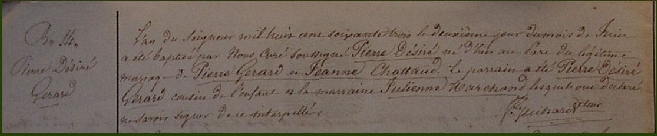 B. 
Pierre Désiré
Gerard
L'an du Seigneur mil huit cent soixante trois le deuxième jour du mois de Juin
a été baptisé par Nous Curé soussigné Pierre Désiré né d'hier au Parc du légitime
mariage de Pierre Gerard et Jeanne Chattaud. le parrain a été Pierre Désiré
Gerard cousin de l'enfant et la marraine Julienne Marchand lesquels ont déclaré
ne savoir signer de ce interpellés.